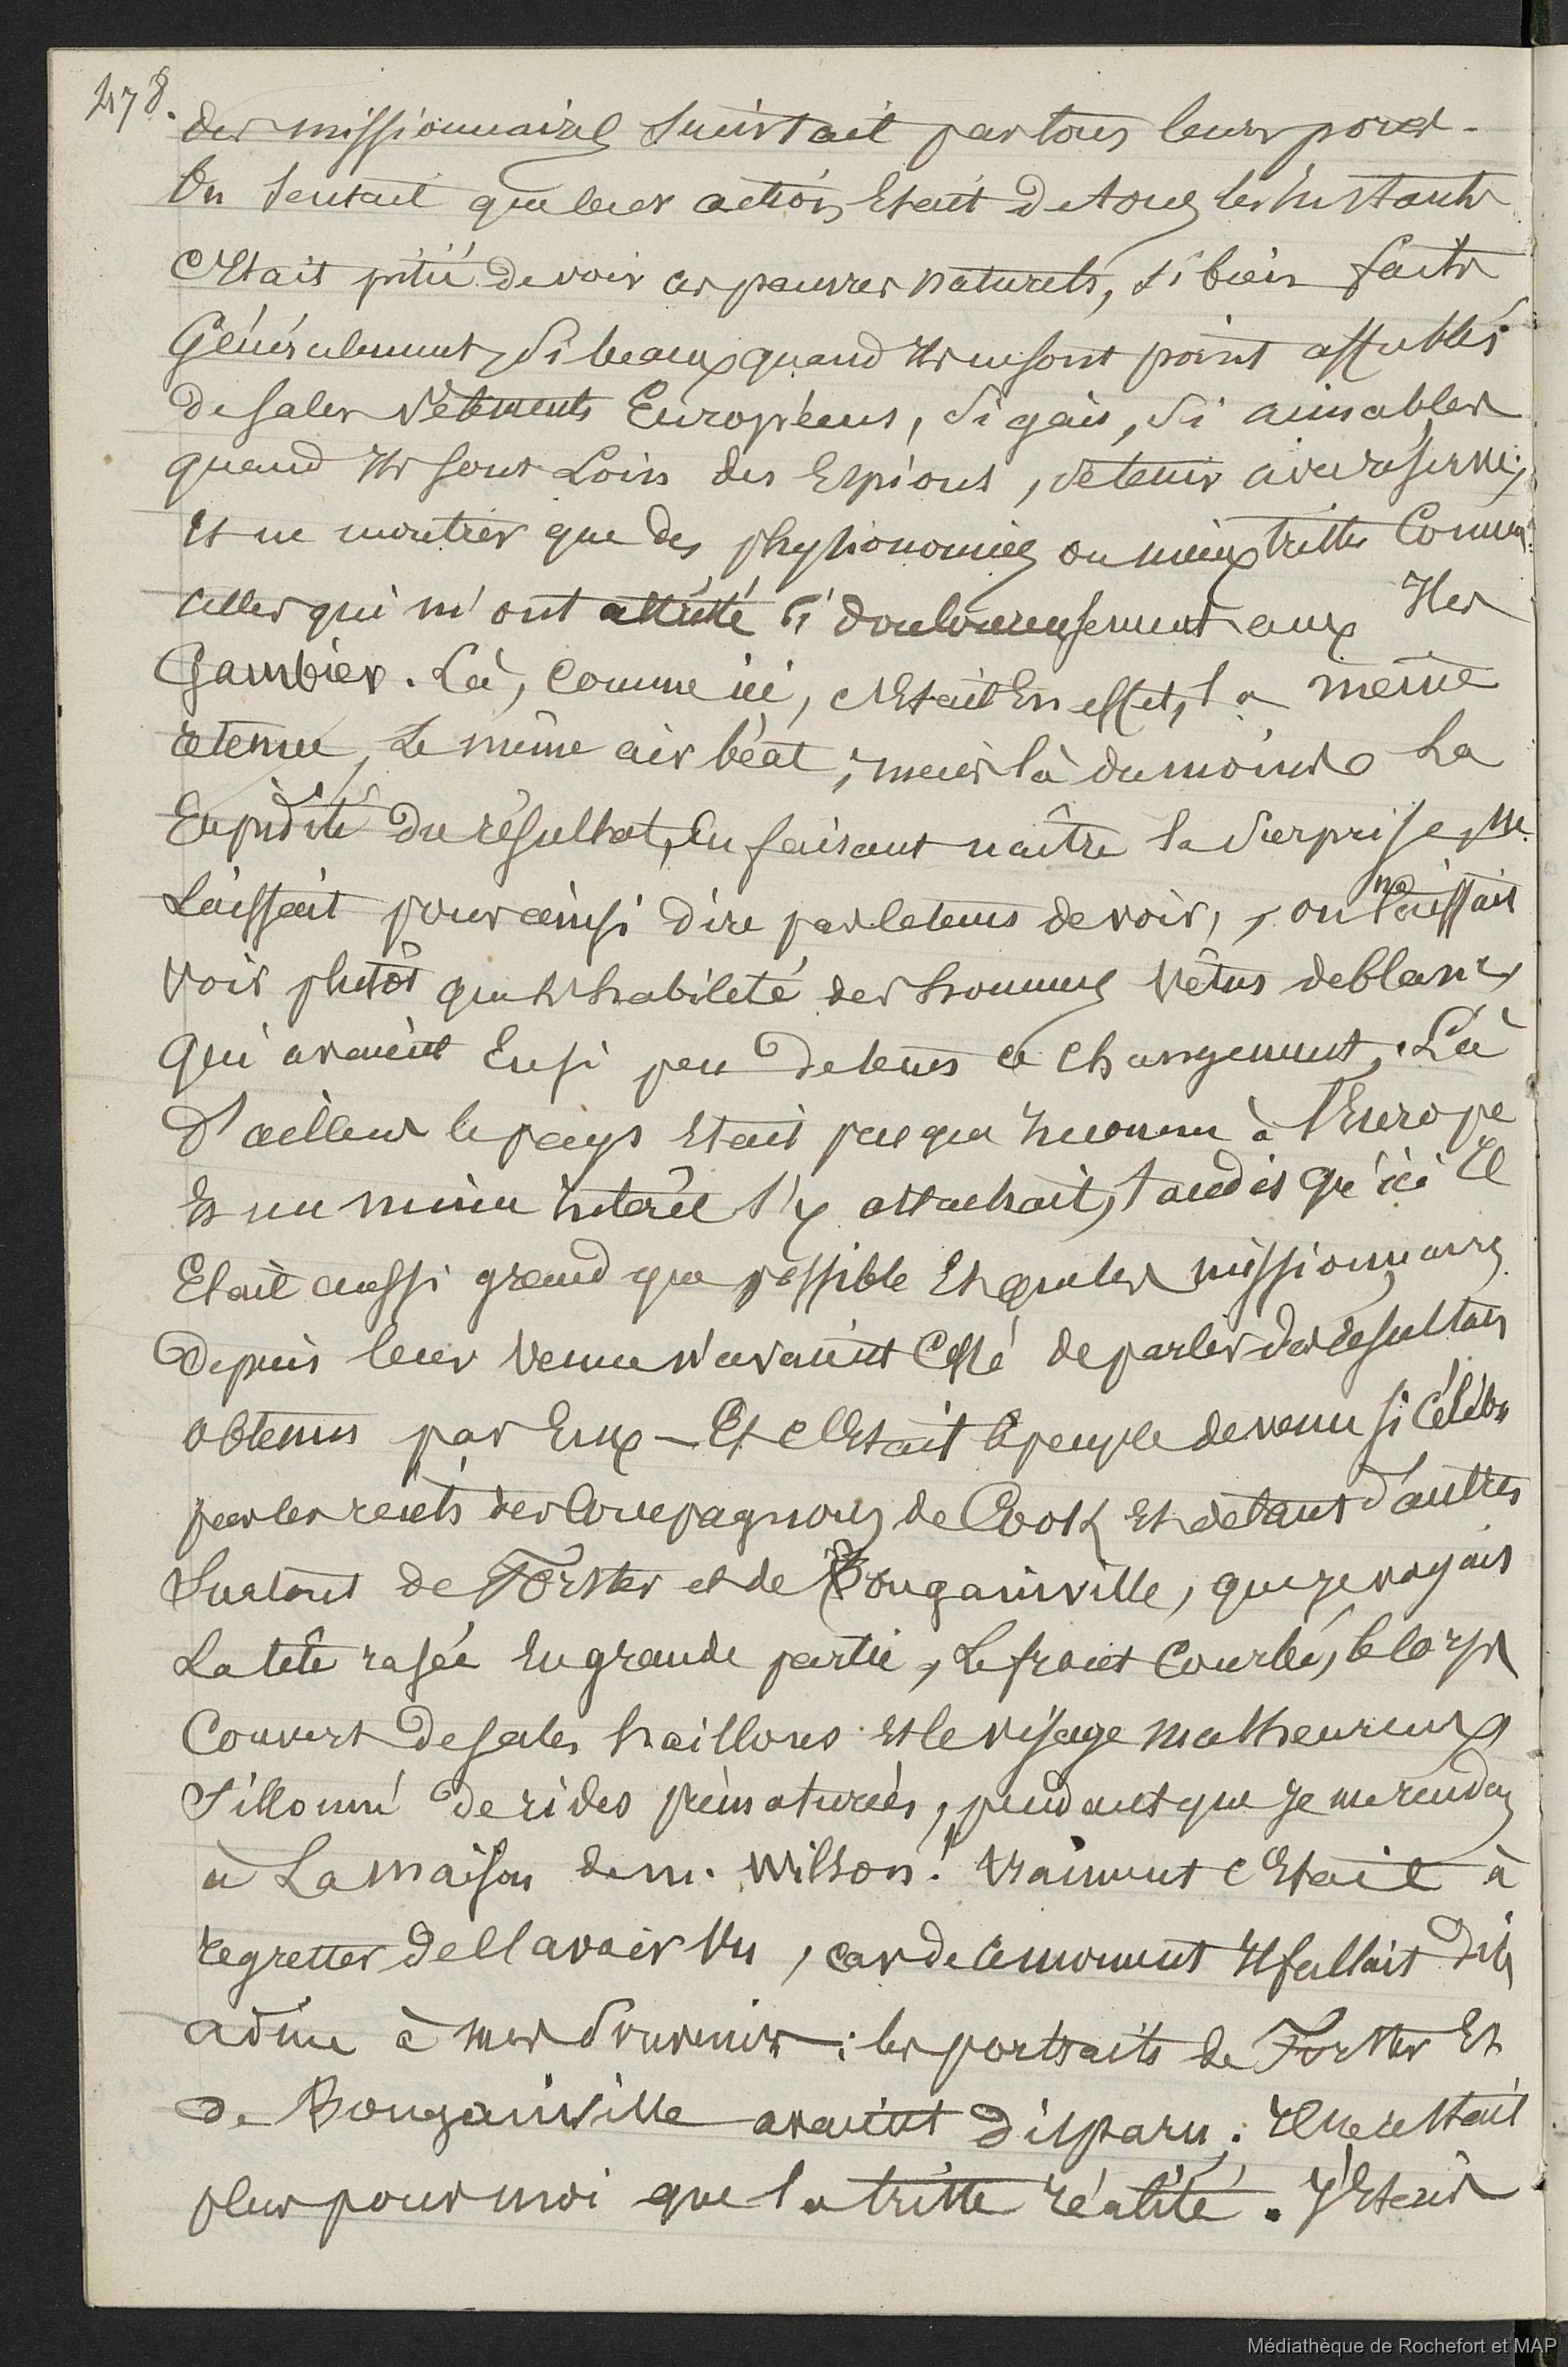 478.
des missionnaires suintait par tous leurs pores.
On sentait que leur action Etait de tous les Instants
C'Etait pitié de voir ces pauvres naturels, si bien faits
Généralement, si beaux quand Ils ne sont point affublés
de sales Vêtements Européens, si gais, si aimables
quand Ils sont Loin des Espions, se tenir avec réserve,
Et ne montrer que des physionomies ou mieux tristes Comme
celles qui m'ont attristé si douloureusement aux Iles
Gambier. Là, comme ici, c'Etait En effet, la même
retenue, Le même air béat, mais là du moins La
rapidité du résultat, En faisant naître la surprise, ne
Laissait pour ainsi dire pas le tems de voir, on ne laissait
voir plutôt que l'habileté des hommes Vêtus de blanc,
qui avaient En si peu de tems ce changement. Là
D'ailleurs le pays Etait presque Inconnu à l'Europe
Et un mince Intérêt s'y attachait, tandis qu'ici Il
Etait aussi grand que possible Et que les missionnaires
Depuis leur Venue n'avaient Cessé de parler des résultats
obtenus par Eux — Et c'Etait le peuple devenu si Célèbre
par les récits des Compagnons de Cook Et de tant d'autres
Surtout de Forster et de Bougainville, que je voyais
La tête rasée En grande partie, Le front Courbé, le Corps
Couvert de sales haillons Et le visage malheureux
Sillonné de rides prématurées, pendant que Je me rendais
à La maison de m. Wilson! Vraiment c'Etait à
regretter de l'avoir Vu, car de ce moment Il fallait dire
adieu à mes souvenirs : les portraits de Forster Et
de Bougainville avaient Disparu ; Il ne restait
plus pour moi que la triste réalité. J'Etais
Médiathèque de Rochefort et MAP